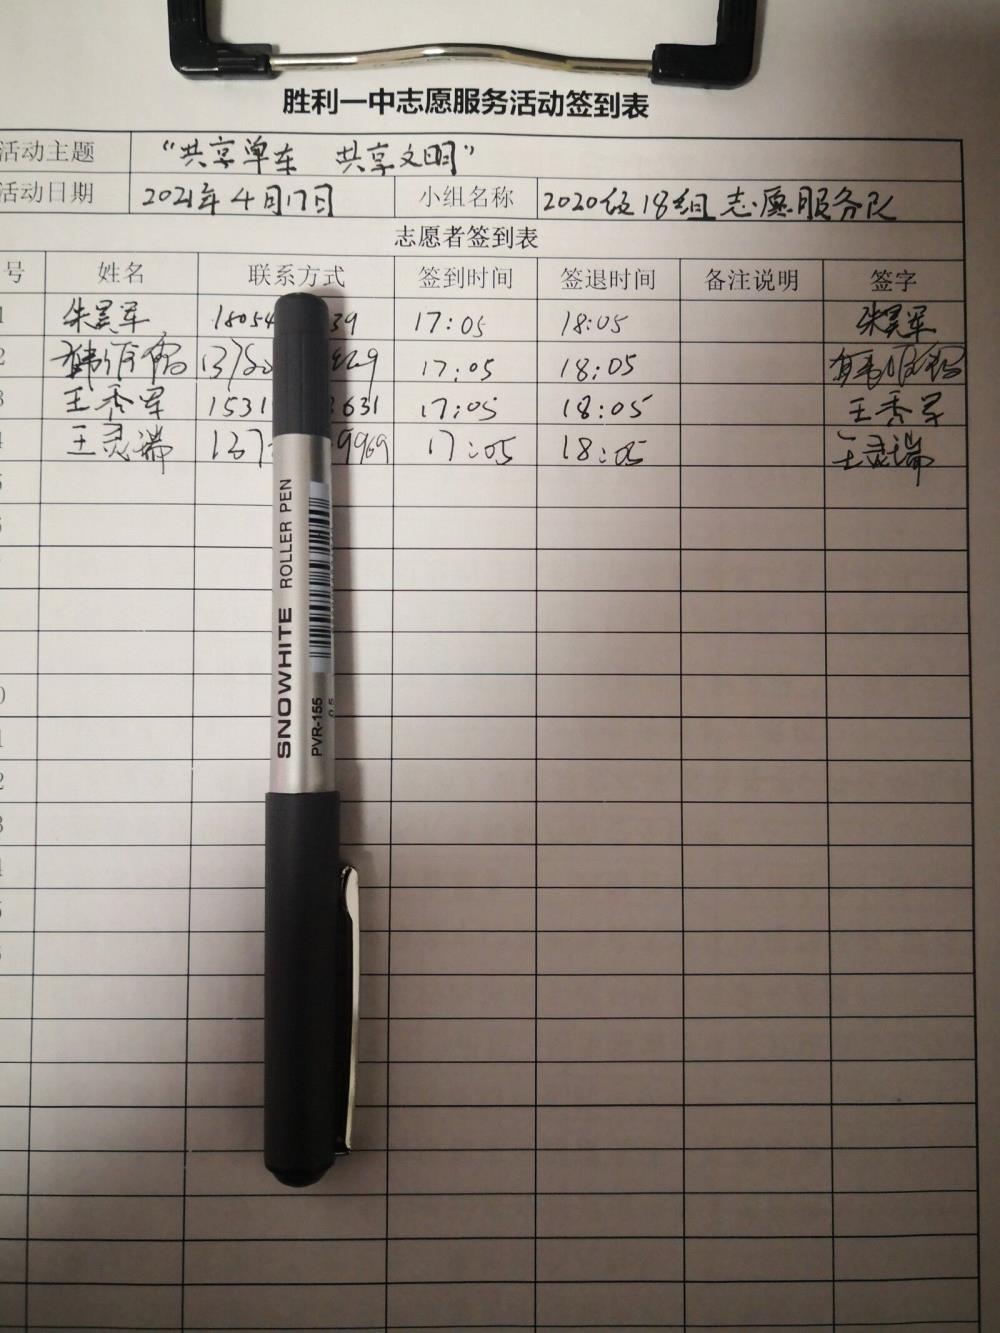 胜利一中志愿服务活动签到表
活动主题 “共享单车 共享文明”
活动日期 2021年4月17日 小组名称 2020级18组志愿服务队
志愿者签到表
号 姓名 联系方式 签到时间 签退时间 备注说明 签字
1 朱昊军 18054 39 17:05 18:05 朱昊军
2 17:05 18:05
3 王秀军 1531 631 17:05 18:05 王秀军
4 王灵瑞 137 9969 17:05 18:05 王灵瑞
SNOWHITE ROLLER PEN
PVR-155
0.5